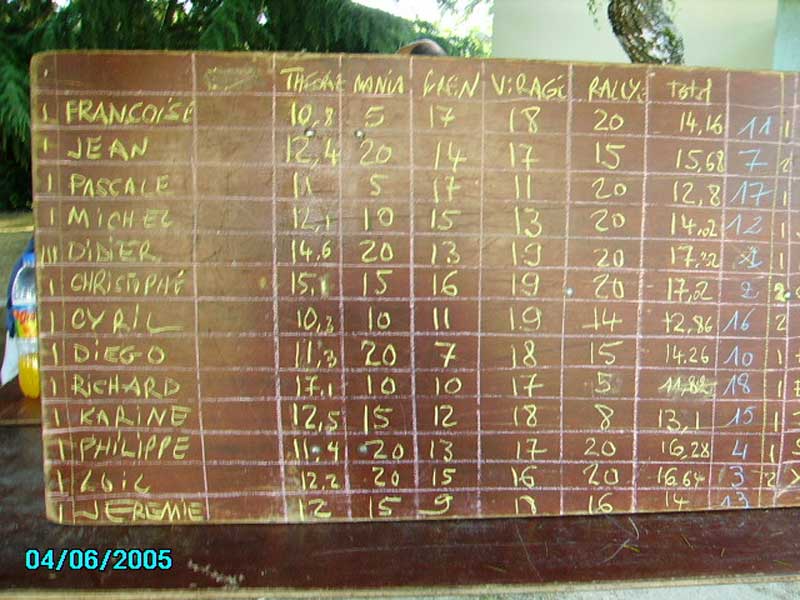 THEORIE MANIA GREN VIRAGE RALLYE total
1 FRANÇOISE 10,8 5 17 18 20 14,16 11 1
1 JEAN 12,4 20 14 17 15 15,68 7 2
1 PASCALE 11 5 17 11 20 12,8 17 1
1 MICHEL 12,1 10 15 13 20 14,02 12 1
III DIDIER 14,6 20 13 19 20 1
1 CHRISTOPHE 15,1 15 16 19 20 17,02 2 2
1 CYRIL 10,3 10 11 19 14 12,86 16 2
1 DIEGO 11,3 20 7 18 15 14.26 10 1
1 RICHARD 17,1 10 10 17 5 11,82 18 1
1 KARINE 12,5 15 12 18 8 13,1 15 1
1 PHILIPPE 11,4 20 13 17 20 16,28 4 1
1 LOIC 12,2 20 15 16 20 16,64 3 2
1 JEREMIE 12 15 9 18 16 14 13
04/06/2005